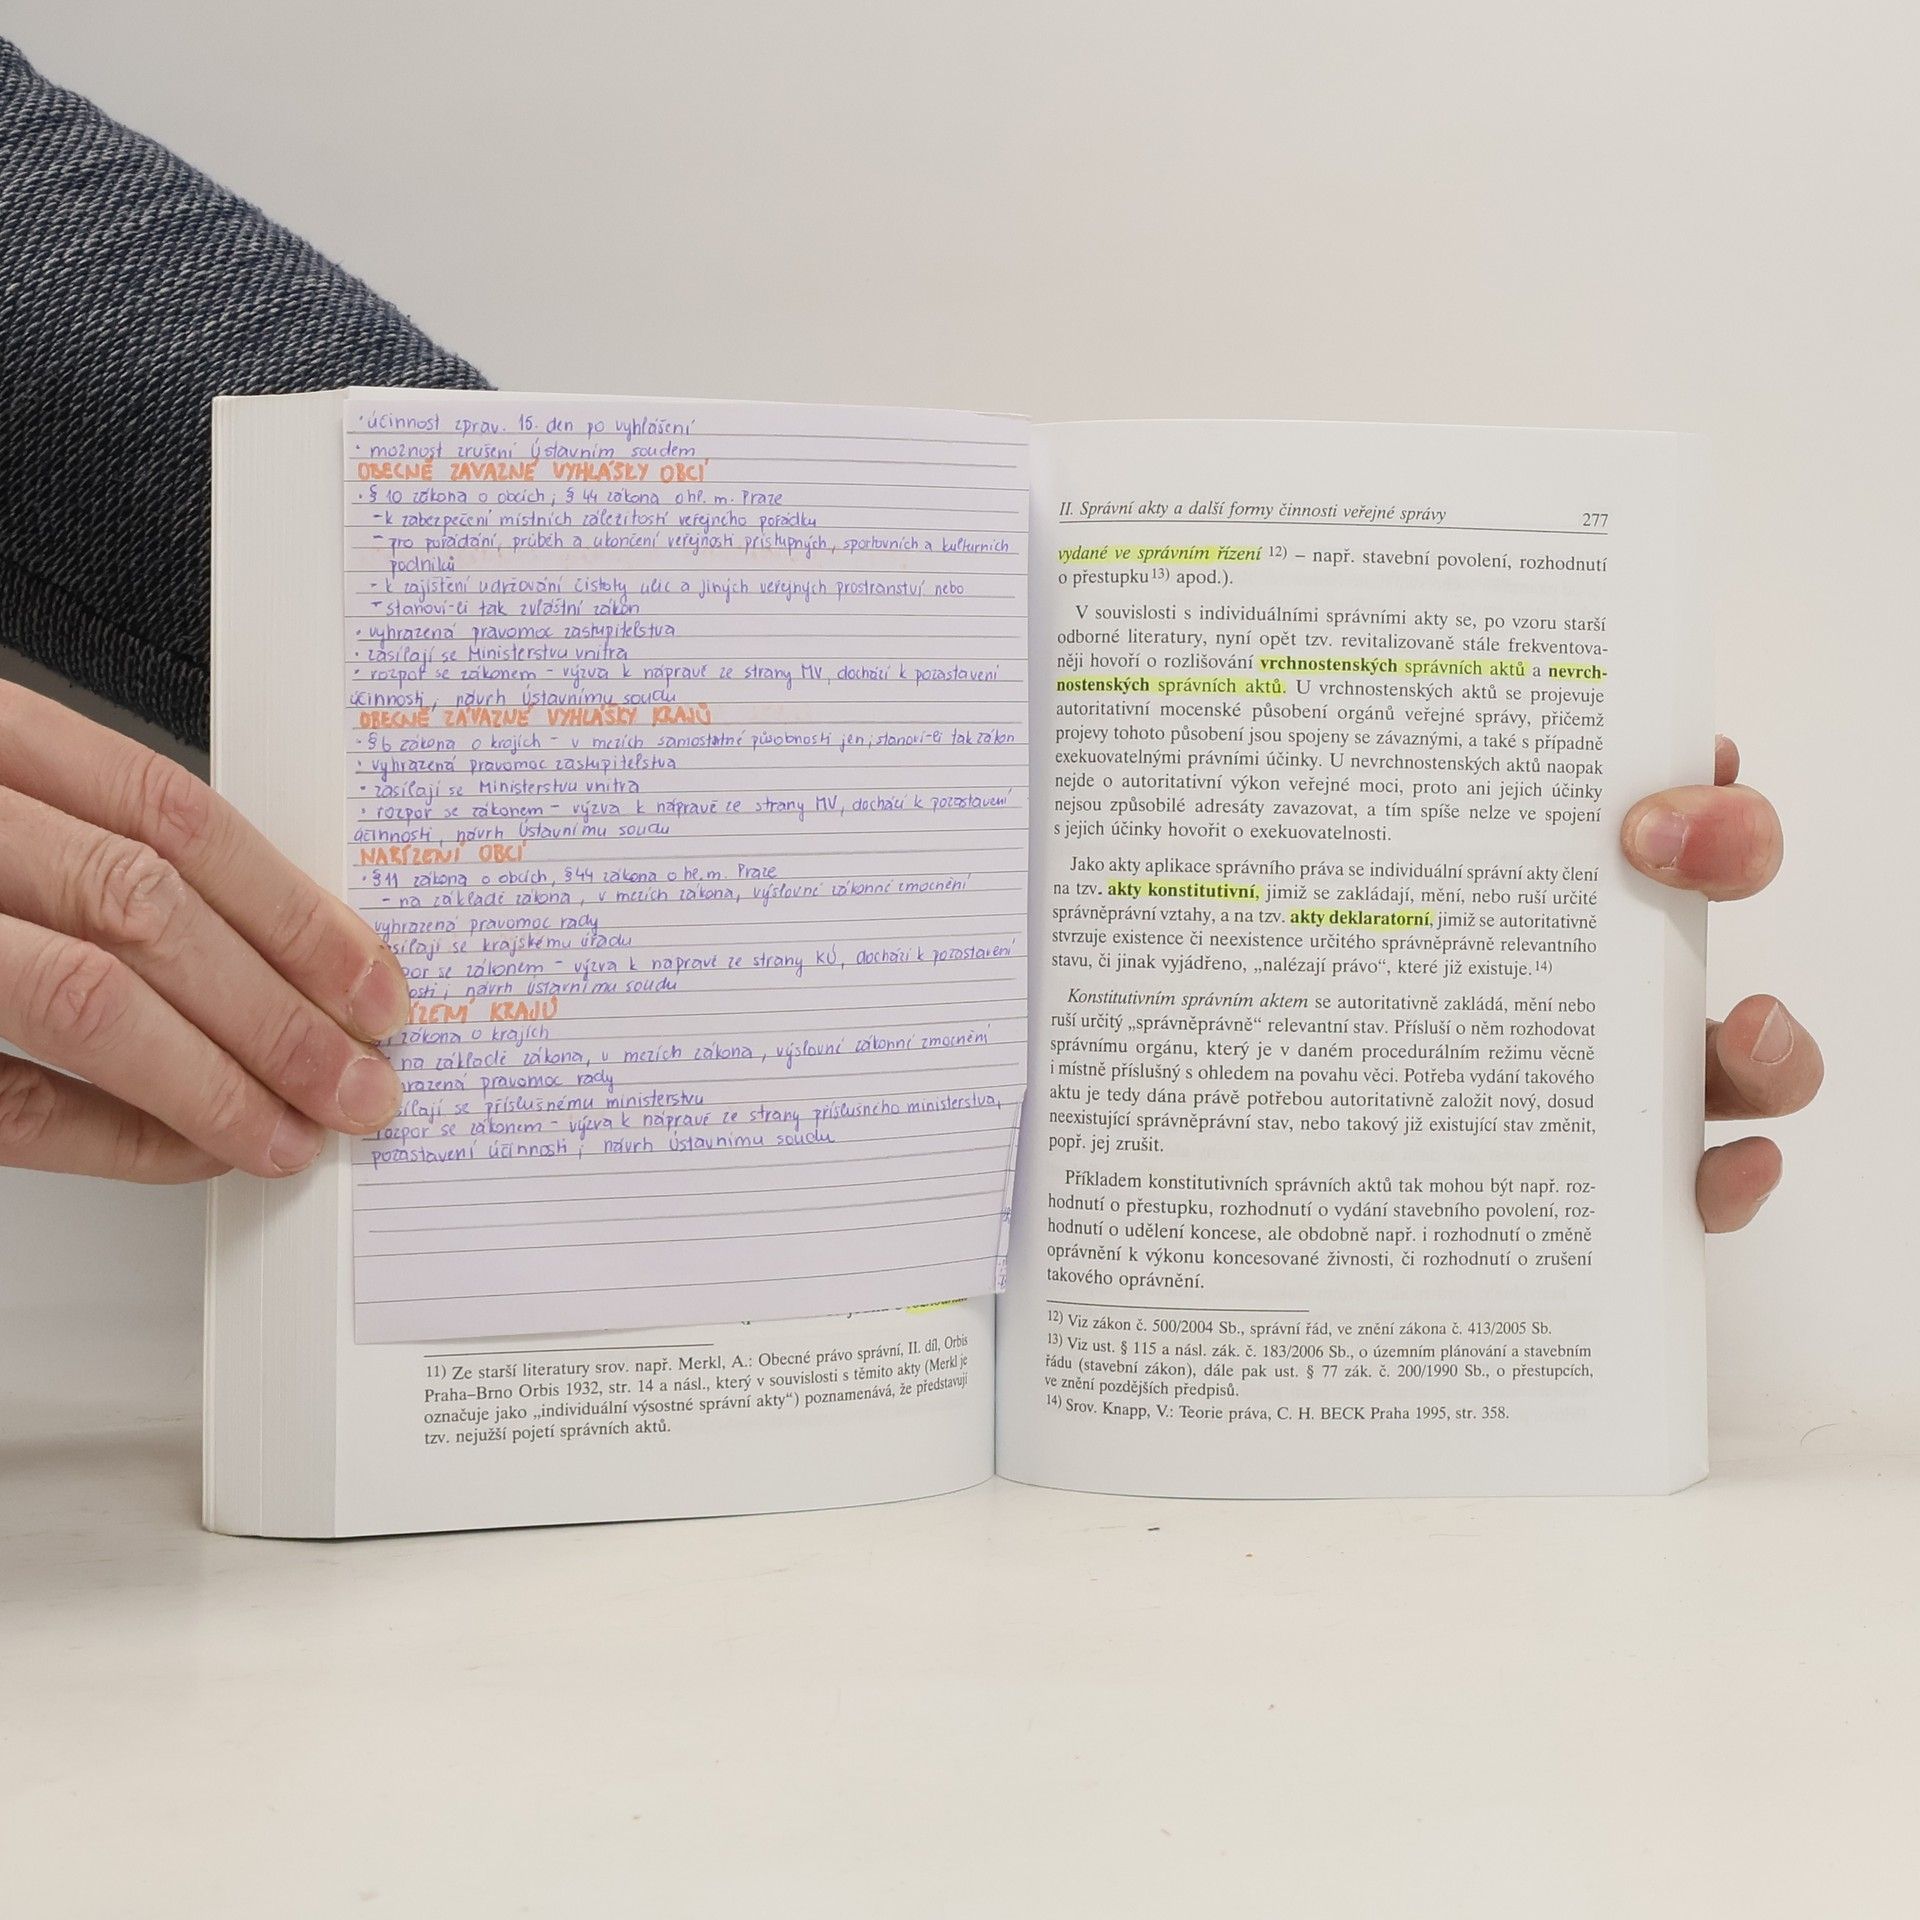 • účinnost zprav. 15. den po vyhlášení
• možnost zrušení Ústavním soudem
OBECNĚ ZÁVAZNÉ VYHLÁŠKY OBCÍ
• § 10 zákona o obcích; § 44 zákona o hl. m. Praze
- k zabezpečení místních záležitostí veřejného pořádku
- pro pořádání, průběh a ukončení veřejnosti přístupných, sportovních a kulturních
podniků
- k zajištění udržování čistoty ulic a jiných veřejných prostranství nebo
- stanoví-li tak zvláštní zákon
• vyhrazená pravomoc zastupitelstva
• zasílají se Ministerstvu vnitra
• rozpor se zákonem - výzva k nápravě ze strany MV, dochází k pozastavení
účinnosti; návrh Ústavnímu soudu
OBECNĚ ZÁVAZNÉ VYHLÁŠKY KRAJŮ
• § 6 zákona o krajích - v mezích samostatné působnosti jen, stanoví-li tak zákon
• vyhrazená pravomoc zastupitelstva
• zasílají se Ministerstvu vnitra
• rozpor se zákonem - výzva k nápravě ze strany MV, dochází k pozastavení
účinnosti, návrh Ústavnímu soudu
NAŘÍZENÍ OBCÍ
• § 11 zákona o obcích, § 44 zákona o hl. m. Praze
- na základě zákona, v mezích zákona, výslovné zákonné zmocnění
vyhrazená pravomoc rady
sílají se krajskému úřadu
por se zákonem - výzva k nápravě ze strany KÚ, dochází k pozastavení
osti; návrh Ústavnímu soudu
ÍZENÍ KRAJŮ
zákona o krajích
na základě zákona, v mezích zákona, výslovné zákonné zmocnění
hrazená pravomoc rady
sílají se příslušnému ministerstvu
rozpor se zákonem - výzva k nápravě ze strany příslušného ministerstva,
pozastavení účinnosti; návrh Ústavnímu soudu
11) Ze starší literatury srov. např. Merkl, A.: Obecné právo správní, II. díl, Orbis
Praha–Brno Orbis 1932, str. 14 a násl., který v souvislosti s těmito akty (Merkl je
označuje jako „individuální výsostné správní akty“) poznamenává, že představují
tzv. nejužší pojetí správních aktů.
II. Správní akty a další formy činnosti veřejné správy 277
vydané ve správním řízení 12) – např. stavební povolení, rozhodnutí
o přestupku 13) apod.).
V souvislosti s individuálními správními akty se, po vzoru starší
odborné literatury, nyní opět tzv. revitalizovaně stále frekventova-
něji hovoří o rozlišování vrchnostenských správních aktů a nevrch-
nostenských správních aktů. U vrchnostenských aktů se projevuje
autoritativní mocenské působení orgánů veřejné správy, přičemž
projevy tohoto působení jsou spojeny se závaznými, a také s případně
exekuovatelnými právními účinky. U nevrchnostenských aktů naopak
nejde o autoritativní výkon veřejné moci, proto ani jejich účinky
nejsou způsobilé adresáty zavazovat, a tím spíše nelze ve spojení
s jejich účinky hovořit o exekuovatelnosti.
Jako akty aplikace správního práva se individuální správní akty člení
na tzv. akty konstitutivní, jimiž se zakládají, mění, nebo ruší určité
správněprávní vztahy, a na tzv. akty deklaratorní, jimiž se autoritativně
stvrzuje existence či neexistence určitého správněprávně relevantního
stavu, či jinak vyjádřeno, „nalézají právo“, které již existuje. 14)
Konstitutivním správním aktem se autoritativně zakládá, mění nebo
ruší určitý „správněprávně“ relevantní stav. Přísluší o něm rozhodovat
správnímu orgánu, který je v daném procedurálním režimu věcně
i místně příslušný s ohledem na povahu věci. Potřeba vydání takového
aktu je tedy dána právě potřebou autoritativně založit nový, dosud
neexistující správněprávní stav, nebo takový již existující stav změnit,
popř. jej zrušit.
Příkladem konstitutivních správních aktů tak mohou být např. roz-
hodnutí o přestupku, rozhodnutí o vydání stavebního povolení, roz-
hodnutí o udělení koncese, ale obdobně např. i rozhodnutí o změně
oprávnění k výkonu koncesované živnosti, či rozhodnutí o zrušení
takového oprávnění.
12) Viz zákon č. 500/2004 Sb., správní řád, ve znění zákona č. 413/2005 Sb.
13) Viz ust. § 115 a násl. zák. č. 183/2006 Sb., o územním plánování a stavebním
řádu (stavební zákon), dále pak ust. § 77 zák. č. 200/1990 Sb., o přestupcích,
ve znění pozdějších předpisů.
14) Srov. Knapp, V.: Teorie práva, C. H. BECK Praha 1995, str. 358.